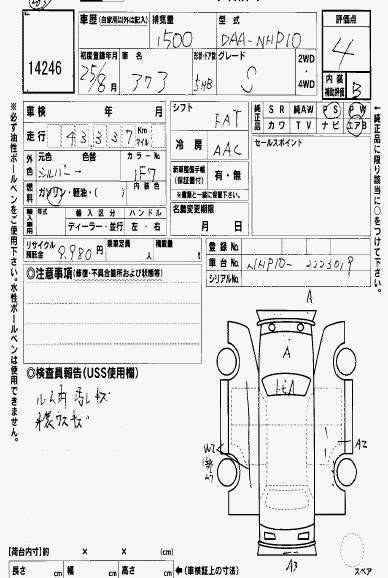 車歴 (自家用以外は記入)
排気量
型式
評価点
14246
1500
DAA-NHP10
4
初度登録年月
車名
形状・ドア数
グレード
2WD
4WD
25/8月
373
5HB
S
内装
補助評価
B
車検 年 月
シフト
FAT
純正品
SR 純AW PS PW
カワ TV ナビ エアB
走行 43337 Km マイル
冷房
AAC
セールスポイント
外色
元色
色替
カラーNo
シルバー
1F7
新車整備手帳
(保証書付)
有・無
※書類と一緒に保管されて下さい。
燃料
ガソリン・軽油・( )
内装色
名義変更期限
月 日
輸入車用
年式
輸入区分
ハンドル
ディーラー・並行
左・右
リサイクル預託金
9,980円
乗車定員
人
積載量
t
登録No.
車台No.
NHP10-2223019
シリアルNo.
◎注意事項(修復・不具合箇所および状態等)
◎検査員報告(USS使用欄)
ルーム内 汚レ キズ
外装ウスキズ
A
A
A
W2
A2
A3
スペア
【荷台内寸】約 × × (cm)
長さ cm 幅 cm 高さ cm ←(車検証上の寸法)
※必ず油性ボールペンをご使用下さい。水性ボールペンは使用できません。
※純正品に限り該当に○をつけて下さい。